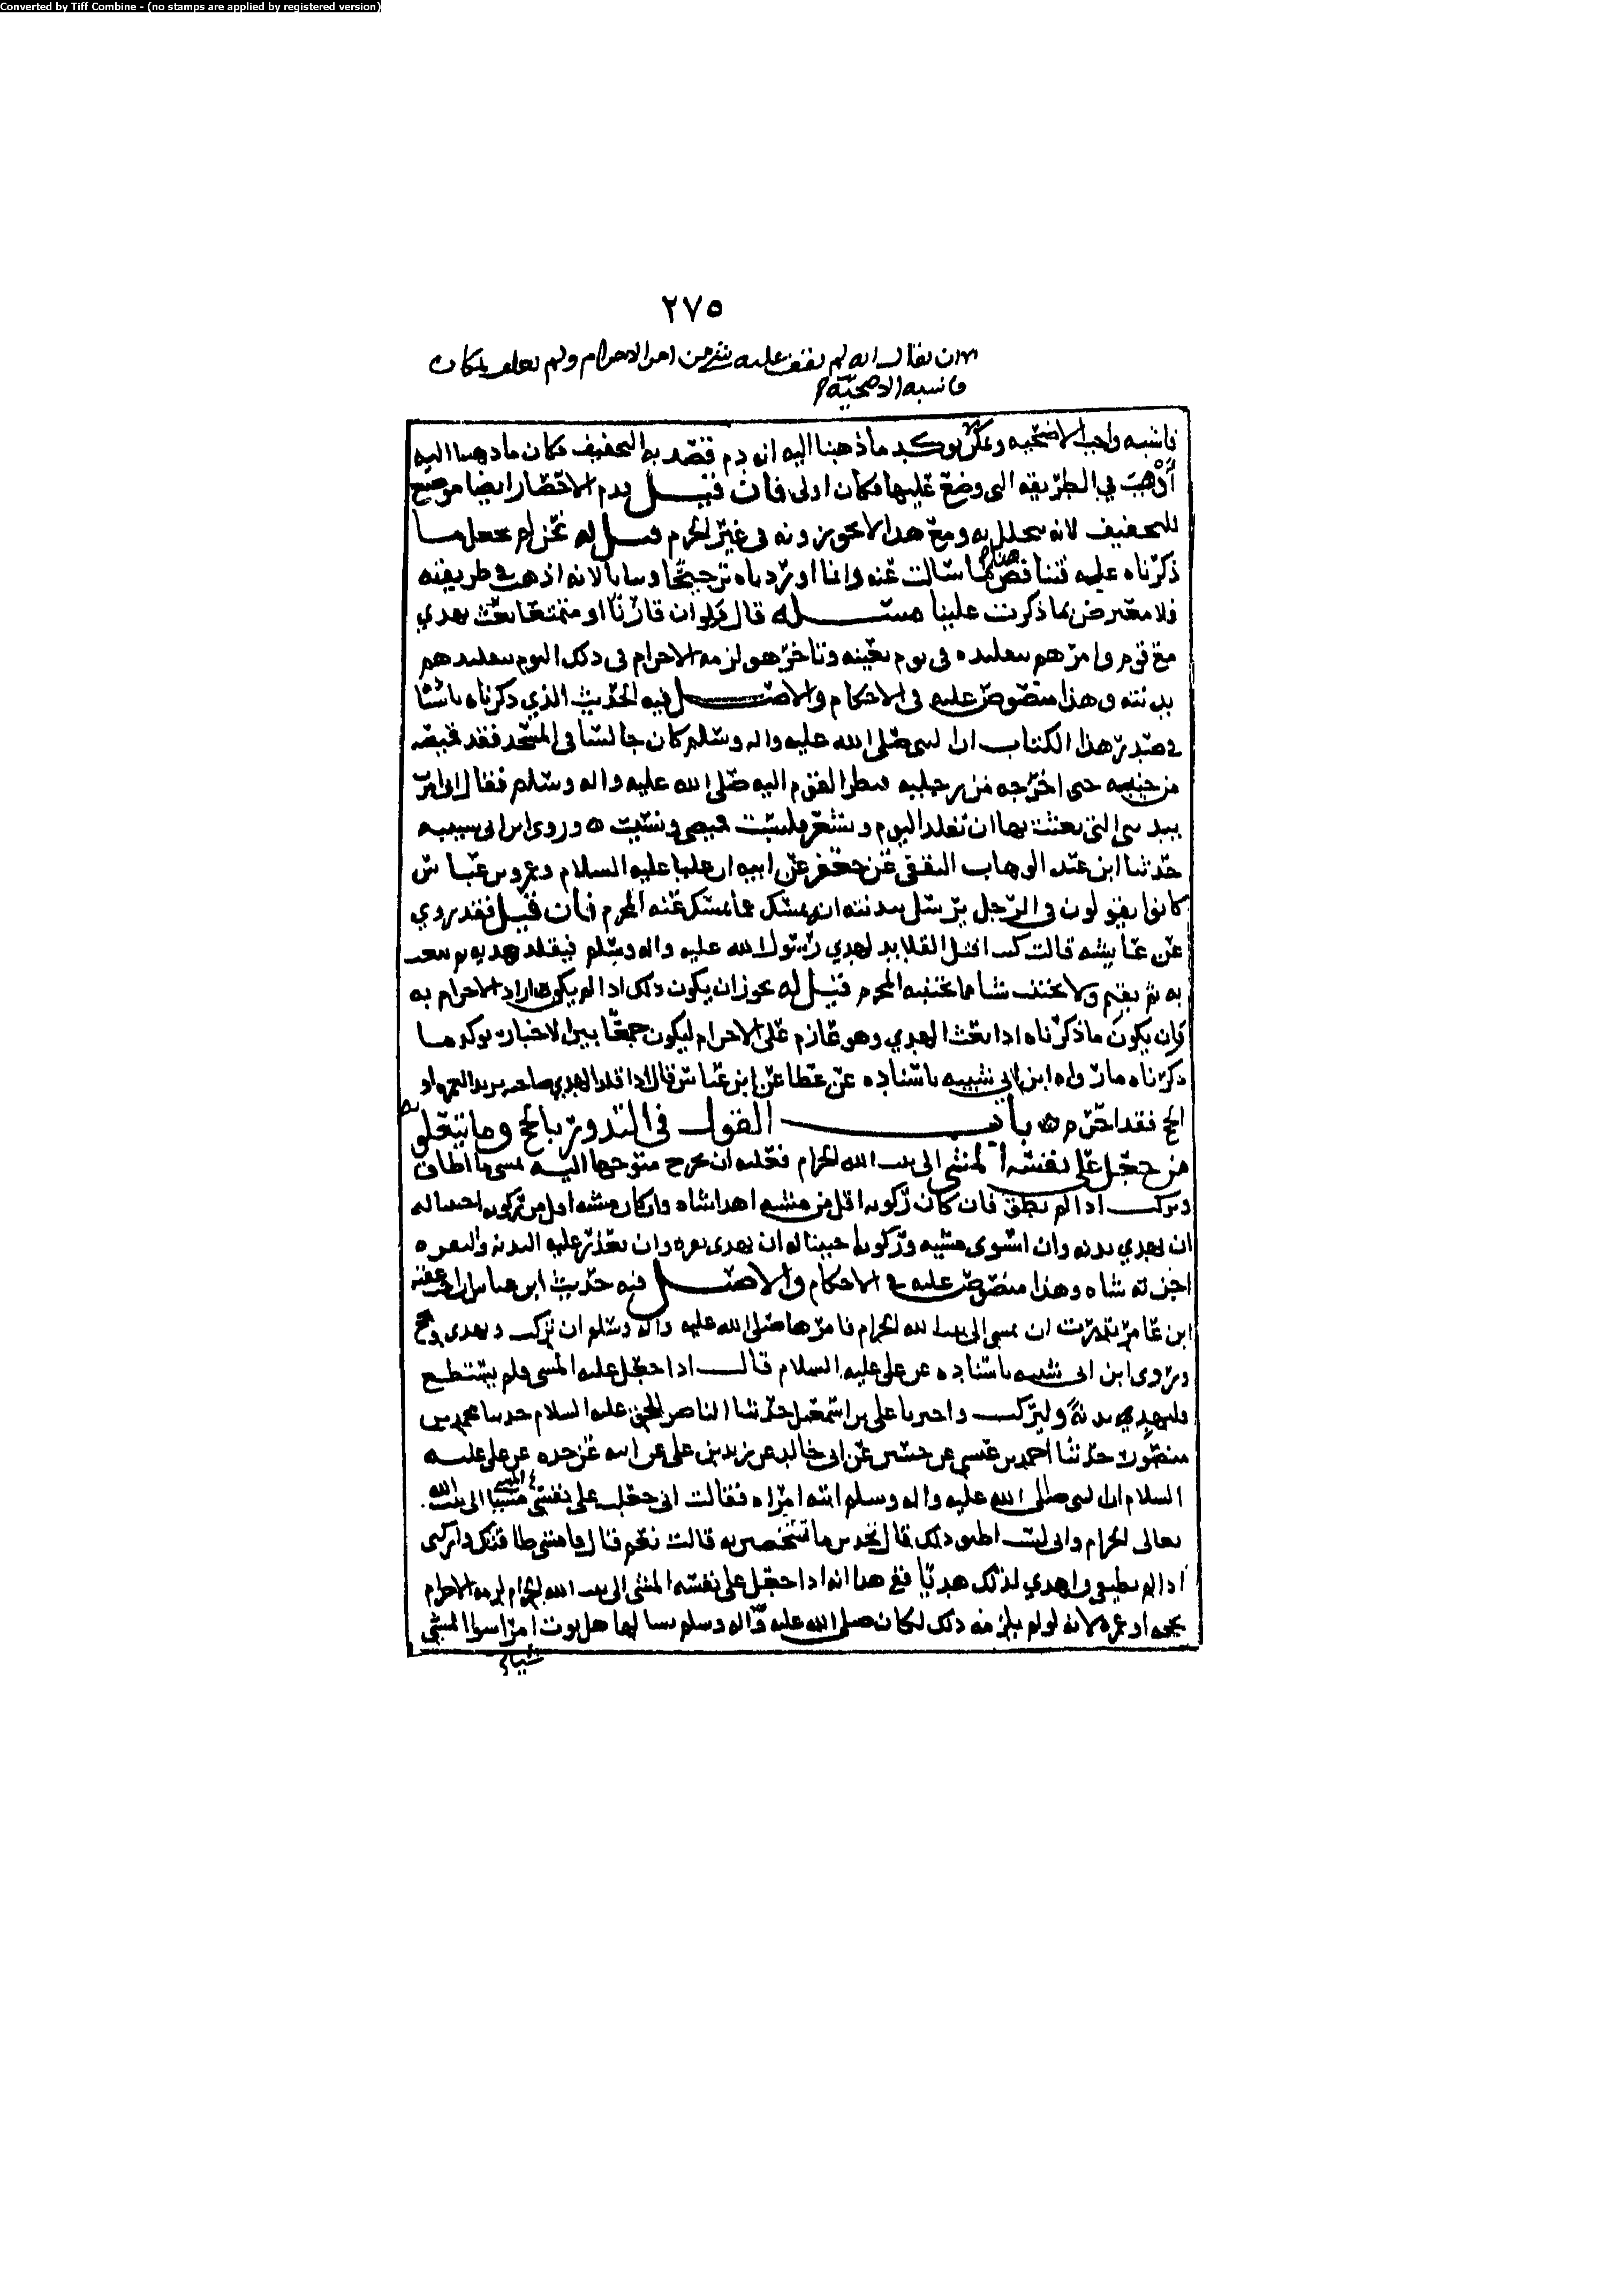 Converted by Tiff Combine - (no stamps are applied by registered version)
٢٧٥
ان يقال انه لم يقف عليه شي من امر الاحرام ولم يتعلق بمكان
فاشبه الاضحية
فاشبه واجب الاضحيه ويمكن ان يوكد ما ذهبنا اليه انه دم قصد به التخفيف فكان ما ذهبنا اليه
أذهب في الطريقه التي وضع عليها فكان اولى فان قيل فدم الاحصار ايضا موضوع
للتخفيف لانه يتحلل به ومع هذا لا تجوزونه في غير الحرم قيل له نحن لم نجعل ما
ذكرناه عليه فتناقض بما سالت عنه وانما اوردناه ترجيحا وبيانا لانه اذهب في طريقته
فلا معترض بما ذكرت علينا مسئله قال ولو ان قارنا او متمتعا بعث بهدي
مع قوم وامرهم بتقليده في يوم بعينه وتاخر هو لزمه الاحرام في ذلك اليوم بتقليدهم
بدنته وهذا منصوص عليه في الاحكام والاصل فيه الحديث الذي ذكرناه باسناده
في صدر هذا الكتاب ان النبي صلى الله عليه واله وسلم كان جالسا في المسجد فقد قميصه
من جيبه حتى اخرجه من رجليه فنظر القوم اليه صلى الله عليه واله وسلم فقال اني امرت
ببدني التي بعثت بها ان تقلد اليوم وتشعر فلبست قميصي ونسيت ه وروى ابن ابي شيبه
حدثنا ابن عبد الوهاب الثقفي عن جعفر عن ابيه ان عليا عليه السلام وعمر وبن عباس
كانوا يقولون في الرجل يرسل ببدنته انه يمسك عما يمسك عنه المحرم فان قيل فقد روي
عن عايشه قالت كنت افتل القلايد لهدي رسول الله عليه واله وسلم فيقلد هديه ثم يبعث
به ثم يقيم ولا يجتنب شيا مما يجتنبه المحرم قيل له يجوز ان يكون ذلك اذا لم يكن اراد الاحرام به
وان يكون ما ذكرناه اذا بعث الهدي وهو عازم على الاحرام ليكون جمعا بين الاخبار يوكد ما
ذكرناه ما رواه ابن ابي شيبه باسناده عن عطا عن ابن عباس قال اذا قلد الهدي صاحبه يريد العمره او
الحج فقد احرم ه باب القول في النذور بالحج وما يتعلق به
من جعل على نفسه المشي الى بيت الله الحرام فعليه ان يخرج متوجها اليه يمشي ما اطاق
ويركب اذا لم يطق فان كان ركوبه اقل من مشيه اهدا شاه وان كان مشيه اقل من ركوبه احببنا له
ان يهدي بدنه وان استوى مشيه وركوبه احببنا له ان يهدي بقره وان تعذر عليه البدنه والبقره
اجزته شاه وهذا منصوص عليه في الاحكام والاصل فيه حديث ابن عباس ان اخت عقبه
ابن عامر نذرت ان تمشي الى بيت الله الحرام فامرها صلى الله عليه واله وسلم ان تركب وتهدي
وروى ابن ابي شيبه باسناده عن علي عليه السلام قال اذا جعل عليه المشي ولم يستطع
فليهدي بدنة وليركب واخبرنا علي بن اسمعيل حدثنا الناصر للحق عليه السلام حدثنا محمد بن
منصور حدثنا احمد بن عيسى عن حسين عن ابي خالد عن زيد بن علي عن ابيه عن جده عن علي عليه
السلام ان النبي صلى الله عليه واله وسلم اتته امراه فقالت اني جعلت على نفسي مشيا الى بيت الله
تعالى الحرام واني لست اطيق ذلك قال تجدين ما تشخصين به قالت نعم قال فامشي طاقتك واركبي
اذا لم تطيقي واهدي لذلك هديا فمع هذا انه اذا جعل على نفسه المشي الى بيت الله الحرام لزمه الاحرام
بحجه او عمره لانه لو لم يلزمه ذلك لكان صلى الله عليه واله وسلم يسالها هل نوت امرا سوا المشي